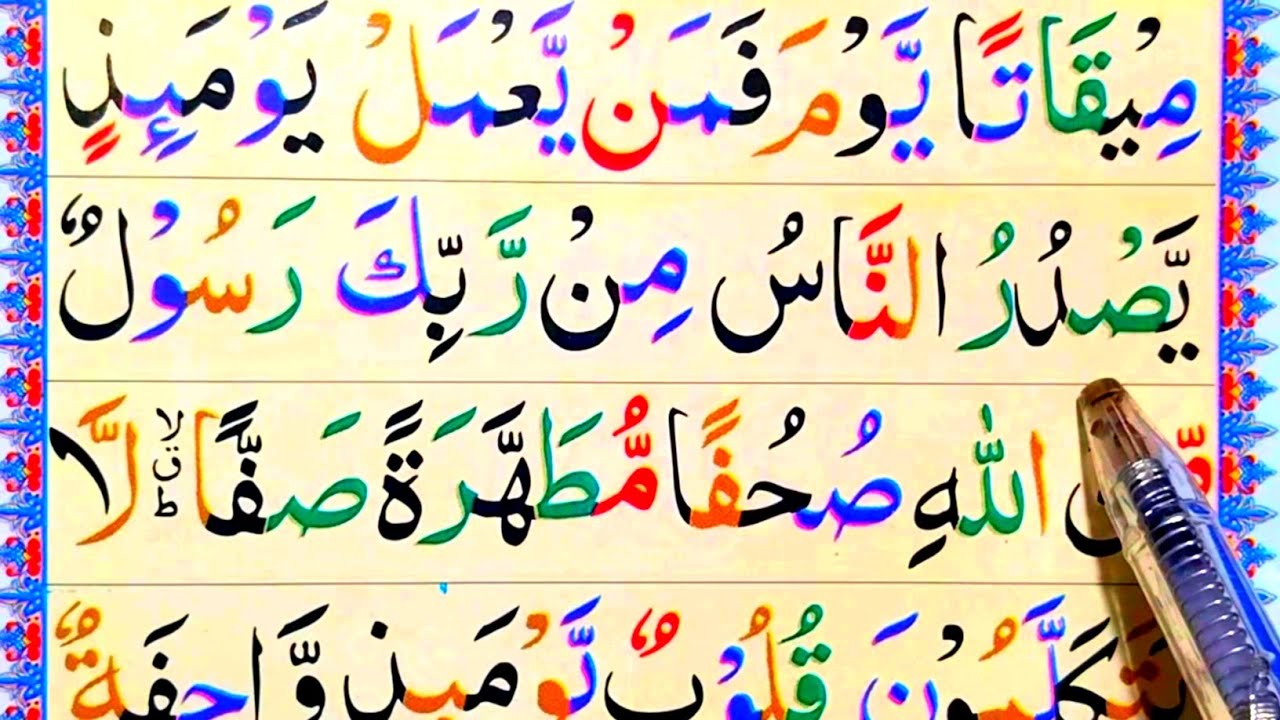 مِيْقَاتًا يَّوْمَ فَمَنْ يَّعْمَلْ يَوْمَئِذٍ
يَّصْدُرُ النَّاسُ مِنْ رَّبِّكَ رَسُوْلٌ
مِّنَ اللّٰهِ صُحُفًا مُّطَهَّرَةً صَفًّا ۙ لَّا
يَتَكَلَّمُوْنَ قُلُوْبٌ يَّوْمَىِٕذٍ وَّاجِفَةٌ